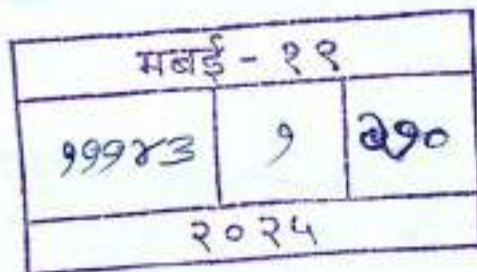 मबई - १९
१११४३ १ २१०
२०२५